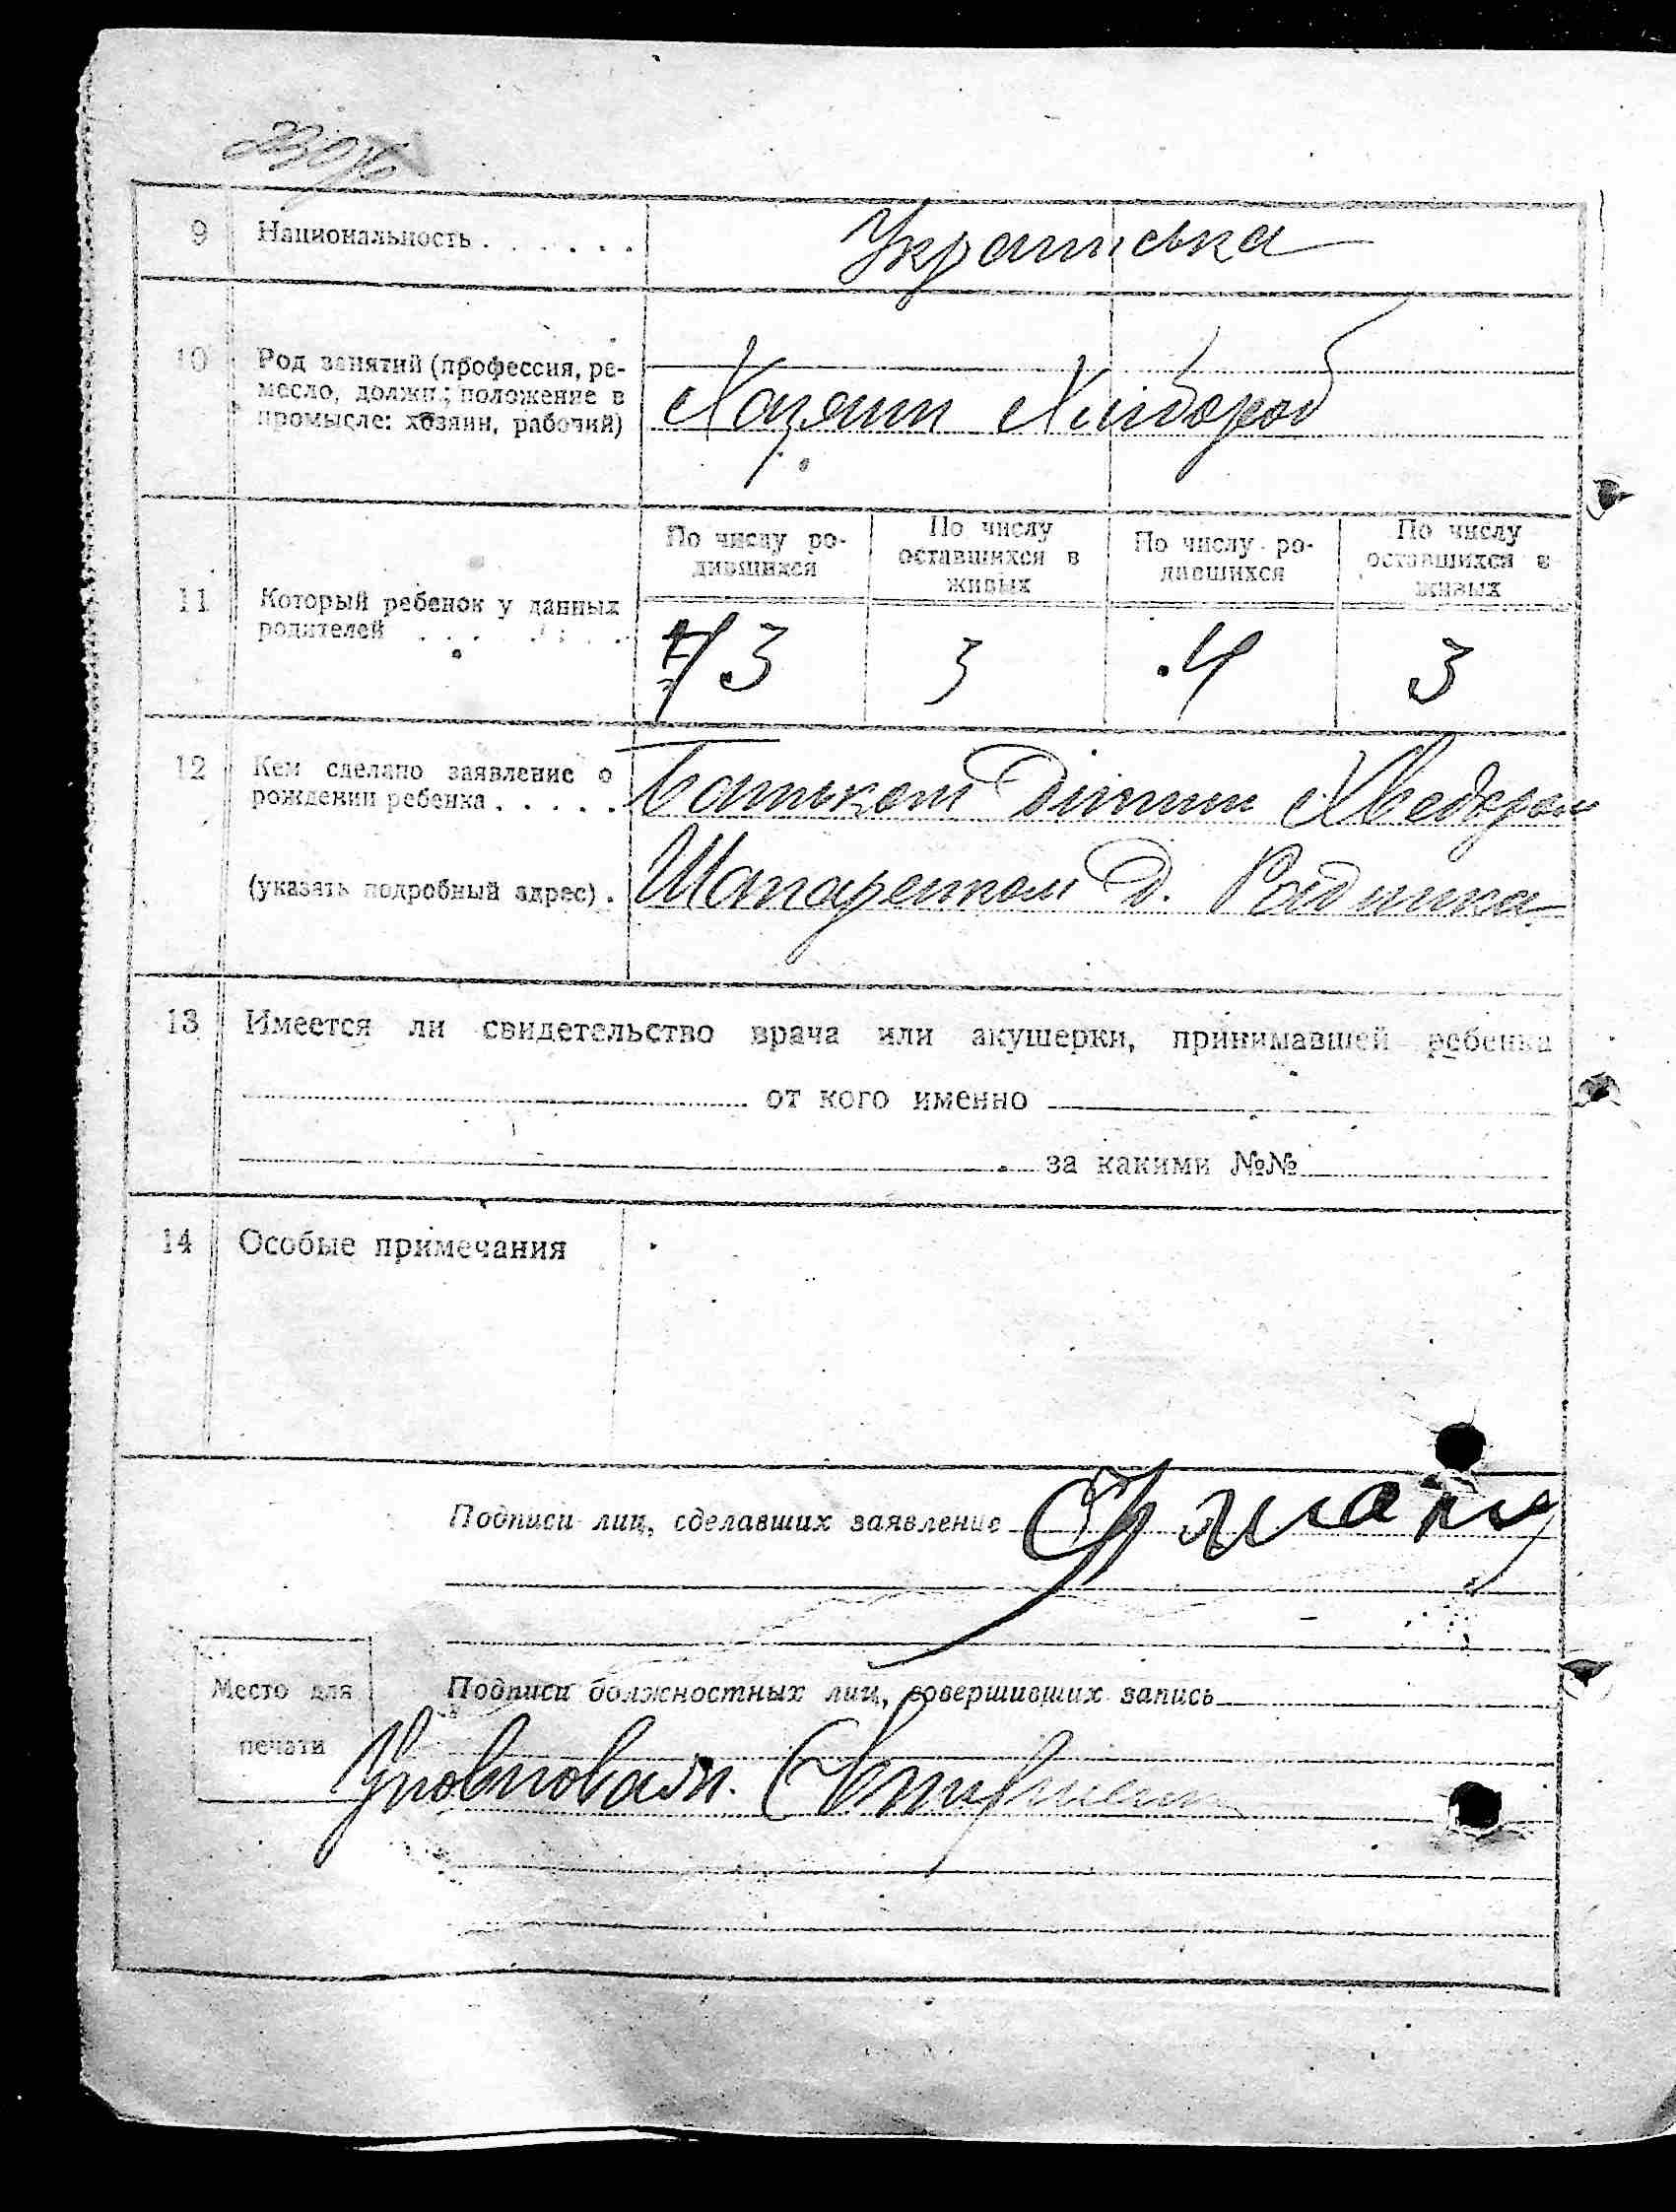 9 Национальность . . . . . . Українська
10 Род занятий (профессия, ре-
месло, должн.; положение в
промысле: хозяин, рабочий)
Хазяин Хлібороб
11 Который ребенок у данных
родителей . . . . . . .
По числу ро-
дившихся
По числу
оставшихся в
живых
По числу ро-
дившихся
По числу
оставшихся в
живых
3 3 4 3
12 Кем сделано заявление о
рождении ребенка . . . . .
(указать подробный адрес) .
Батьком Хведором
Шапаренком Д.
13 Имеется ли свидетельство врача или акушерки, принимавшей ребенка
от кого именно
за какими №№
14 Особые примечания
Подписи лиц, сделавших заявление
Место для
печати
Подписи должностных лиц, совершивших запись
Уповноваж.